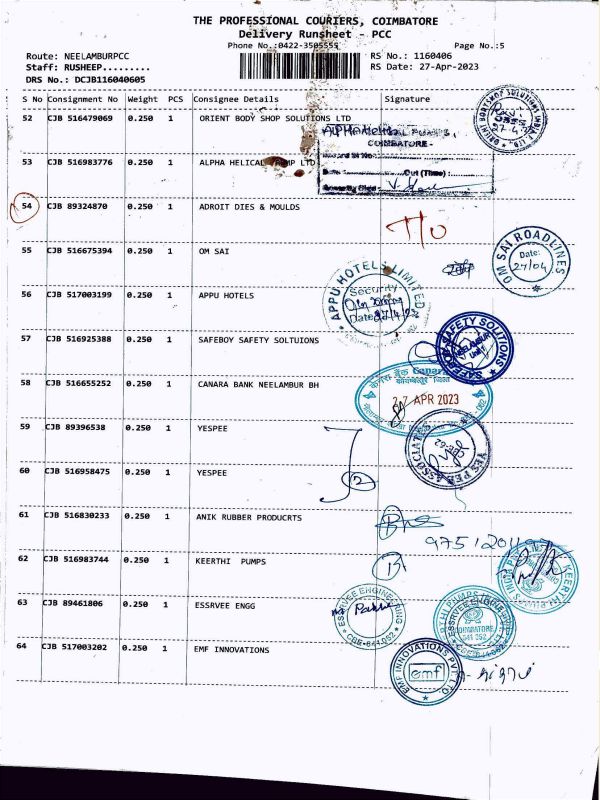 THE PROFESSIONAL COURIERS, COIMBATORE
Delivery Runsheet - PCC
Phone No.:0422-3505555 Page No.:5
Route: NEELAMBURPCC RS No.: 1160406
Staff: RUSHEEP......... RS Date: 27-Apr-2023
DRS No.: DCJB116040605
S No Consignment No Weight PCS Consignee Details Signature
52 CJB 516479069 0.250 1 ORIENT BODY SHOP SOLUTIONS LTD
COIMBATORE -
53 CJB 516983776 0.250 1 ALPHA HELICAL PUMP LTD
Out (Time) :
54 CJB 89324870 0.250 1 ADROIT DIES & MOULDS
T/O
55 CJB 516675394 0.250 1 OM SAI
OM SAI ROADLINES
Date:
27/04
56 CJB 517003199 0.250 1 APPU HOTELS
APPU HOTELS LIMITED
Security
Date
57 CJB 516925388 0.250 1 SAFEBOY SAFETY SOLTUIONS
SAFEBOY SAFETY SOLUTIONS
NEELAMBUR
Unit
58 CJB 516655252 0.250 1 CANARA BANK NEELAMBUR BH
केनरा बैंक Canara
27 APR 2023
59 CJB 89396538 0.250 1 YESPEE
YES PEE ASSOCIATES
60 CJB 516958475 0.250 1 YESPEE
2
61 CJB 516830233 0.250 1 ANIK RUBBER PRODUCRTS
62 CJB 516983744 0.250 1 KEERTHI PUMPS
KEERTHI PUMPS INDIA
63 CJB 89461806 0.250 1 ESSRVEE ENGG
ESSRVEE ENGINEERING
CBE-641 062
COIMBATORE
641 062
64 CJB 517003202 0.250 1 EMF INNOVATIONS
EMF INNOVATIONS PVT LTD
emf